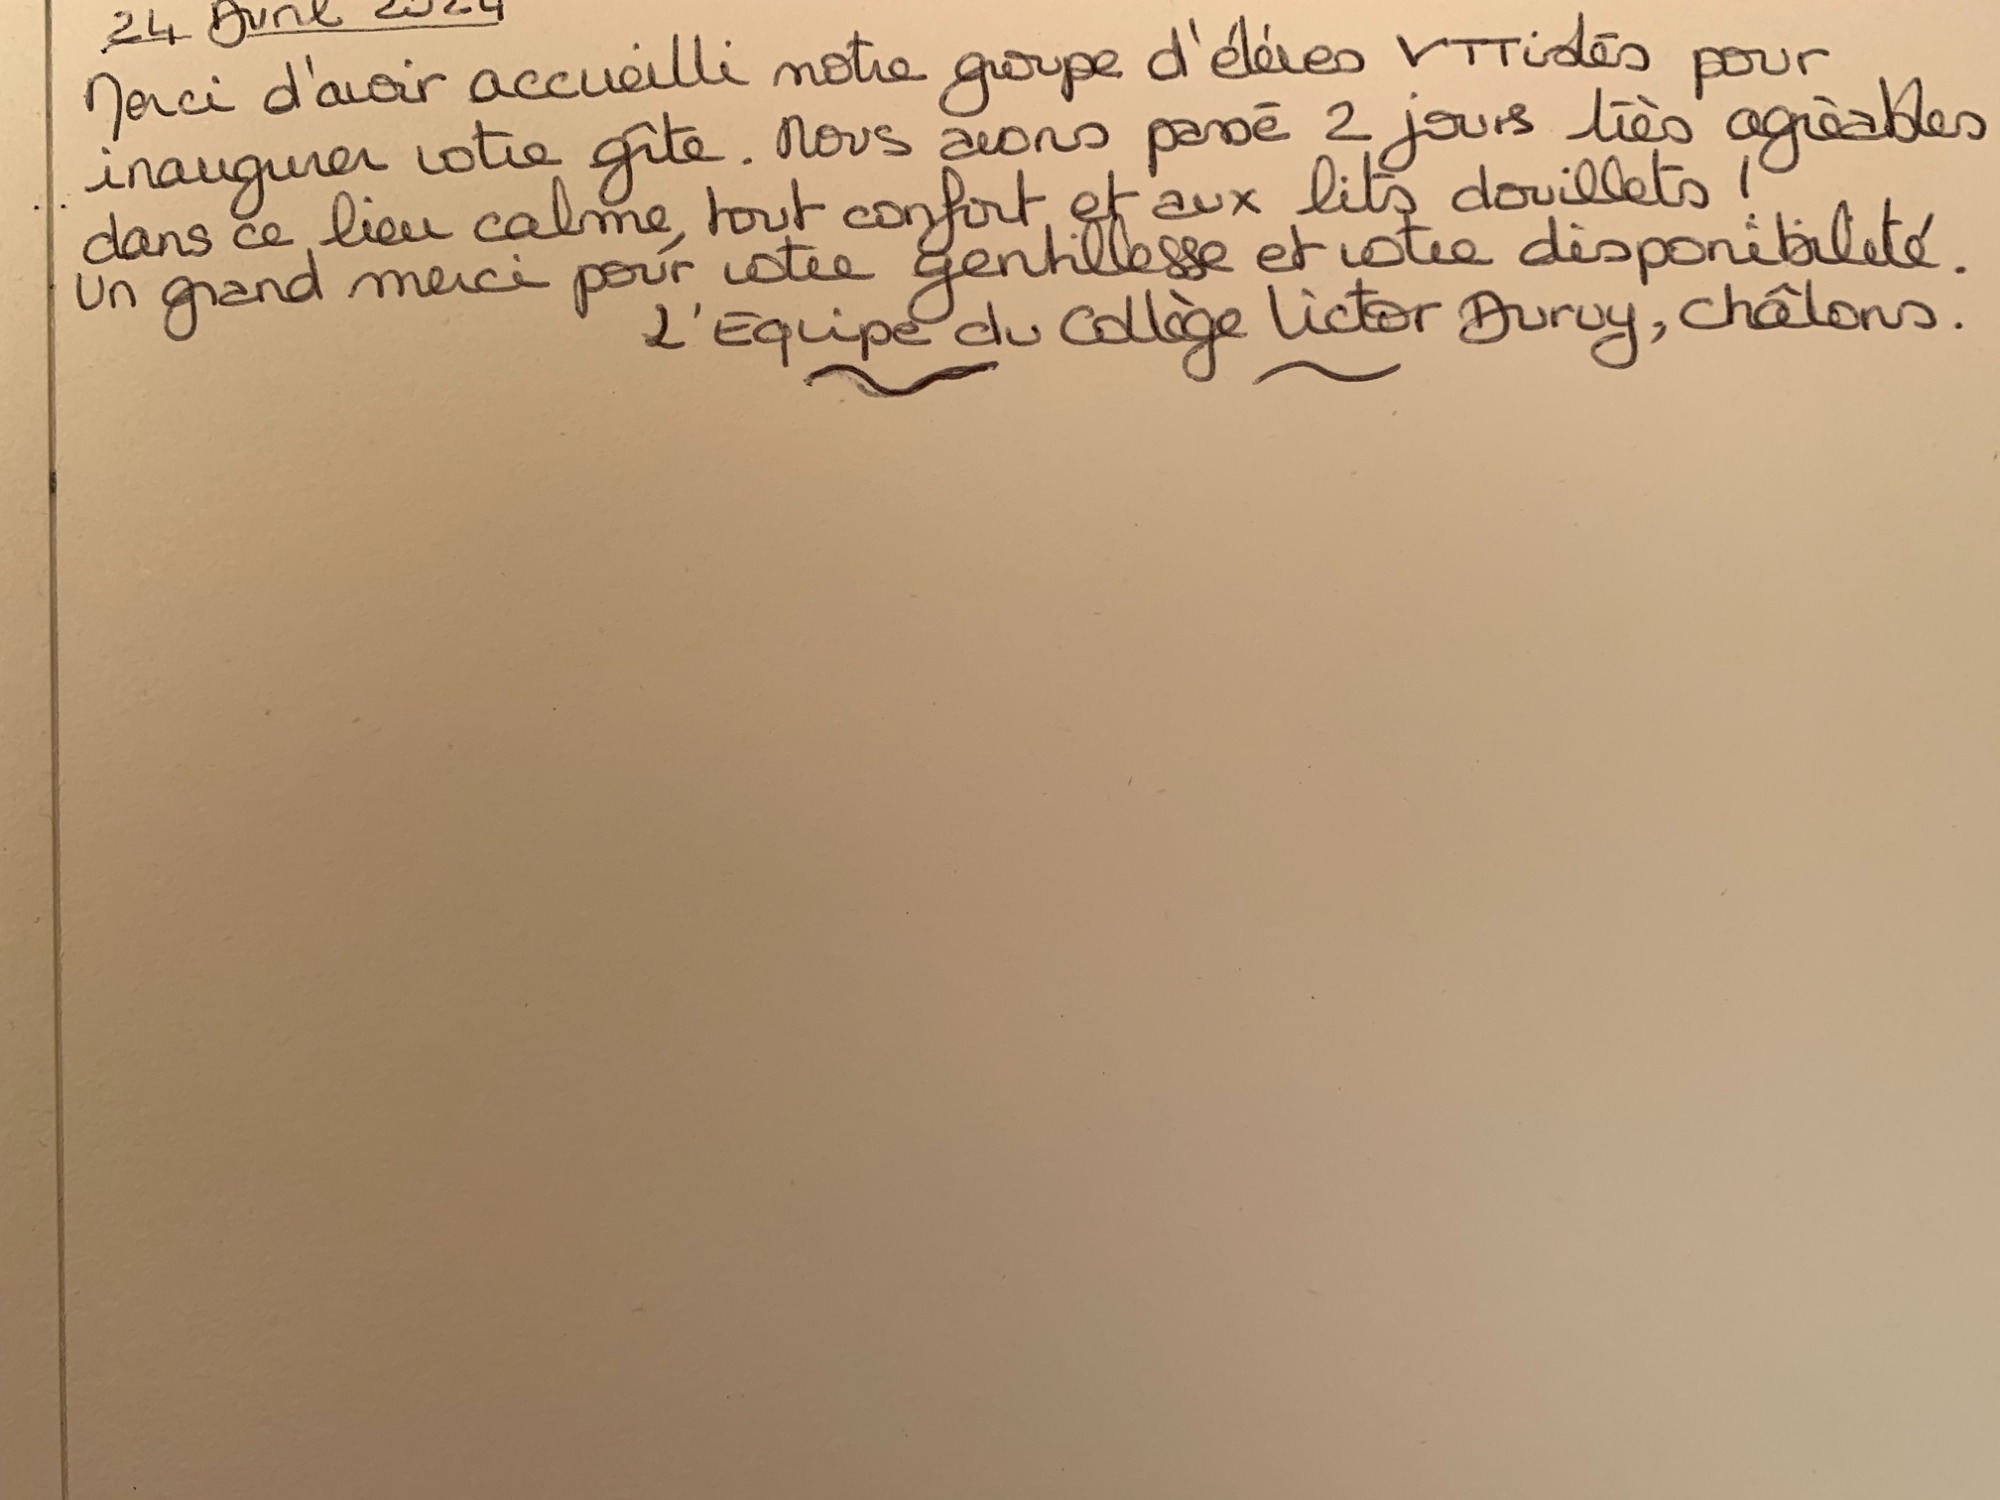 24 Avril 2024
Merci d'avoir accueilli notre groupe d'élèves VTTistes pour
inaugurer votre gîte. Nous avons passé 2 jours très agréables
dans ce lieu calme, tout confort et aux lits douillets !
Un grand merci pour votre gentillesse et votre disponibilité.
L'Equipe du Collège Victor Duruy, Châlons.